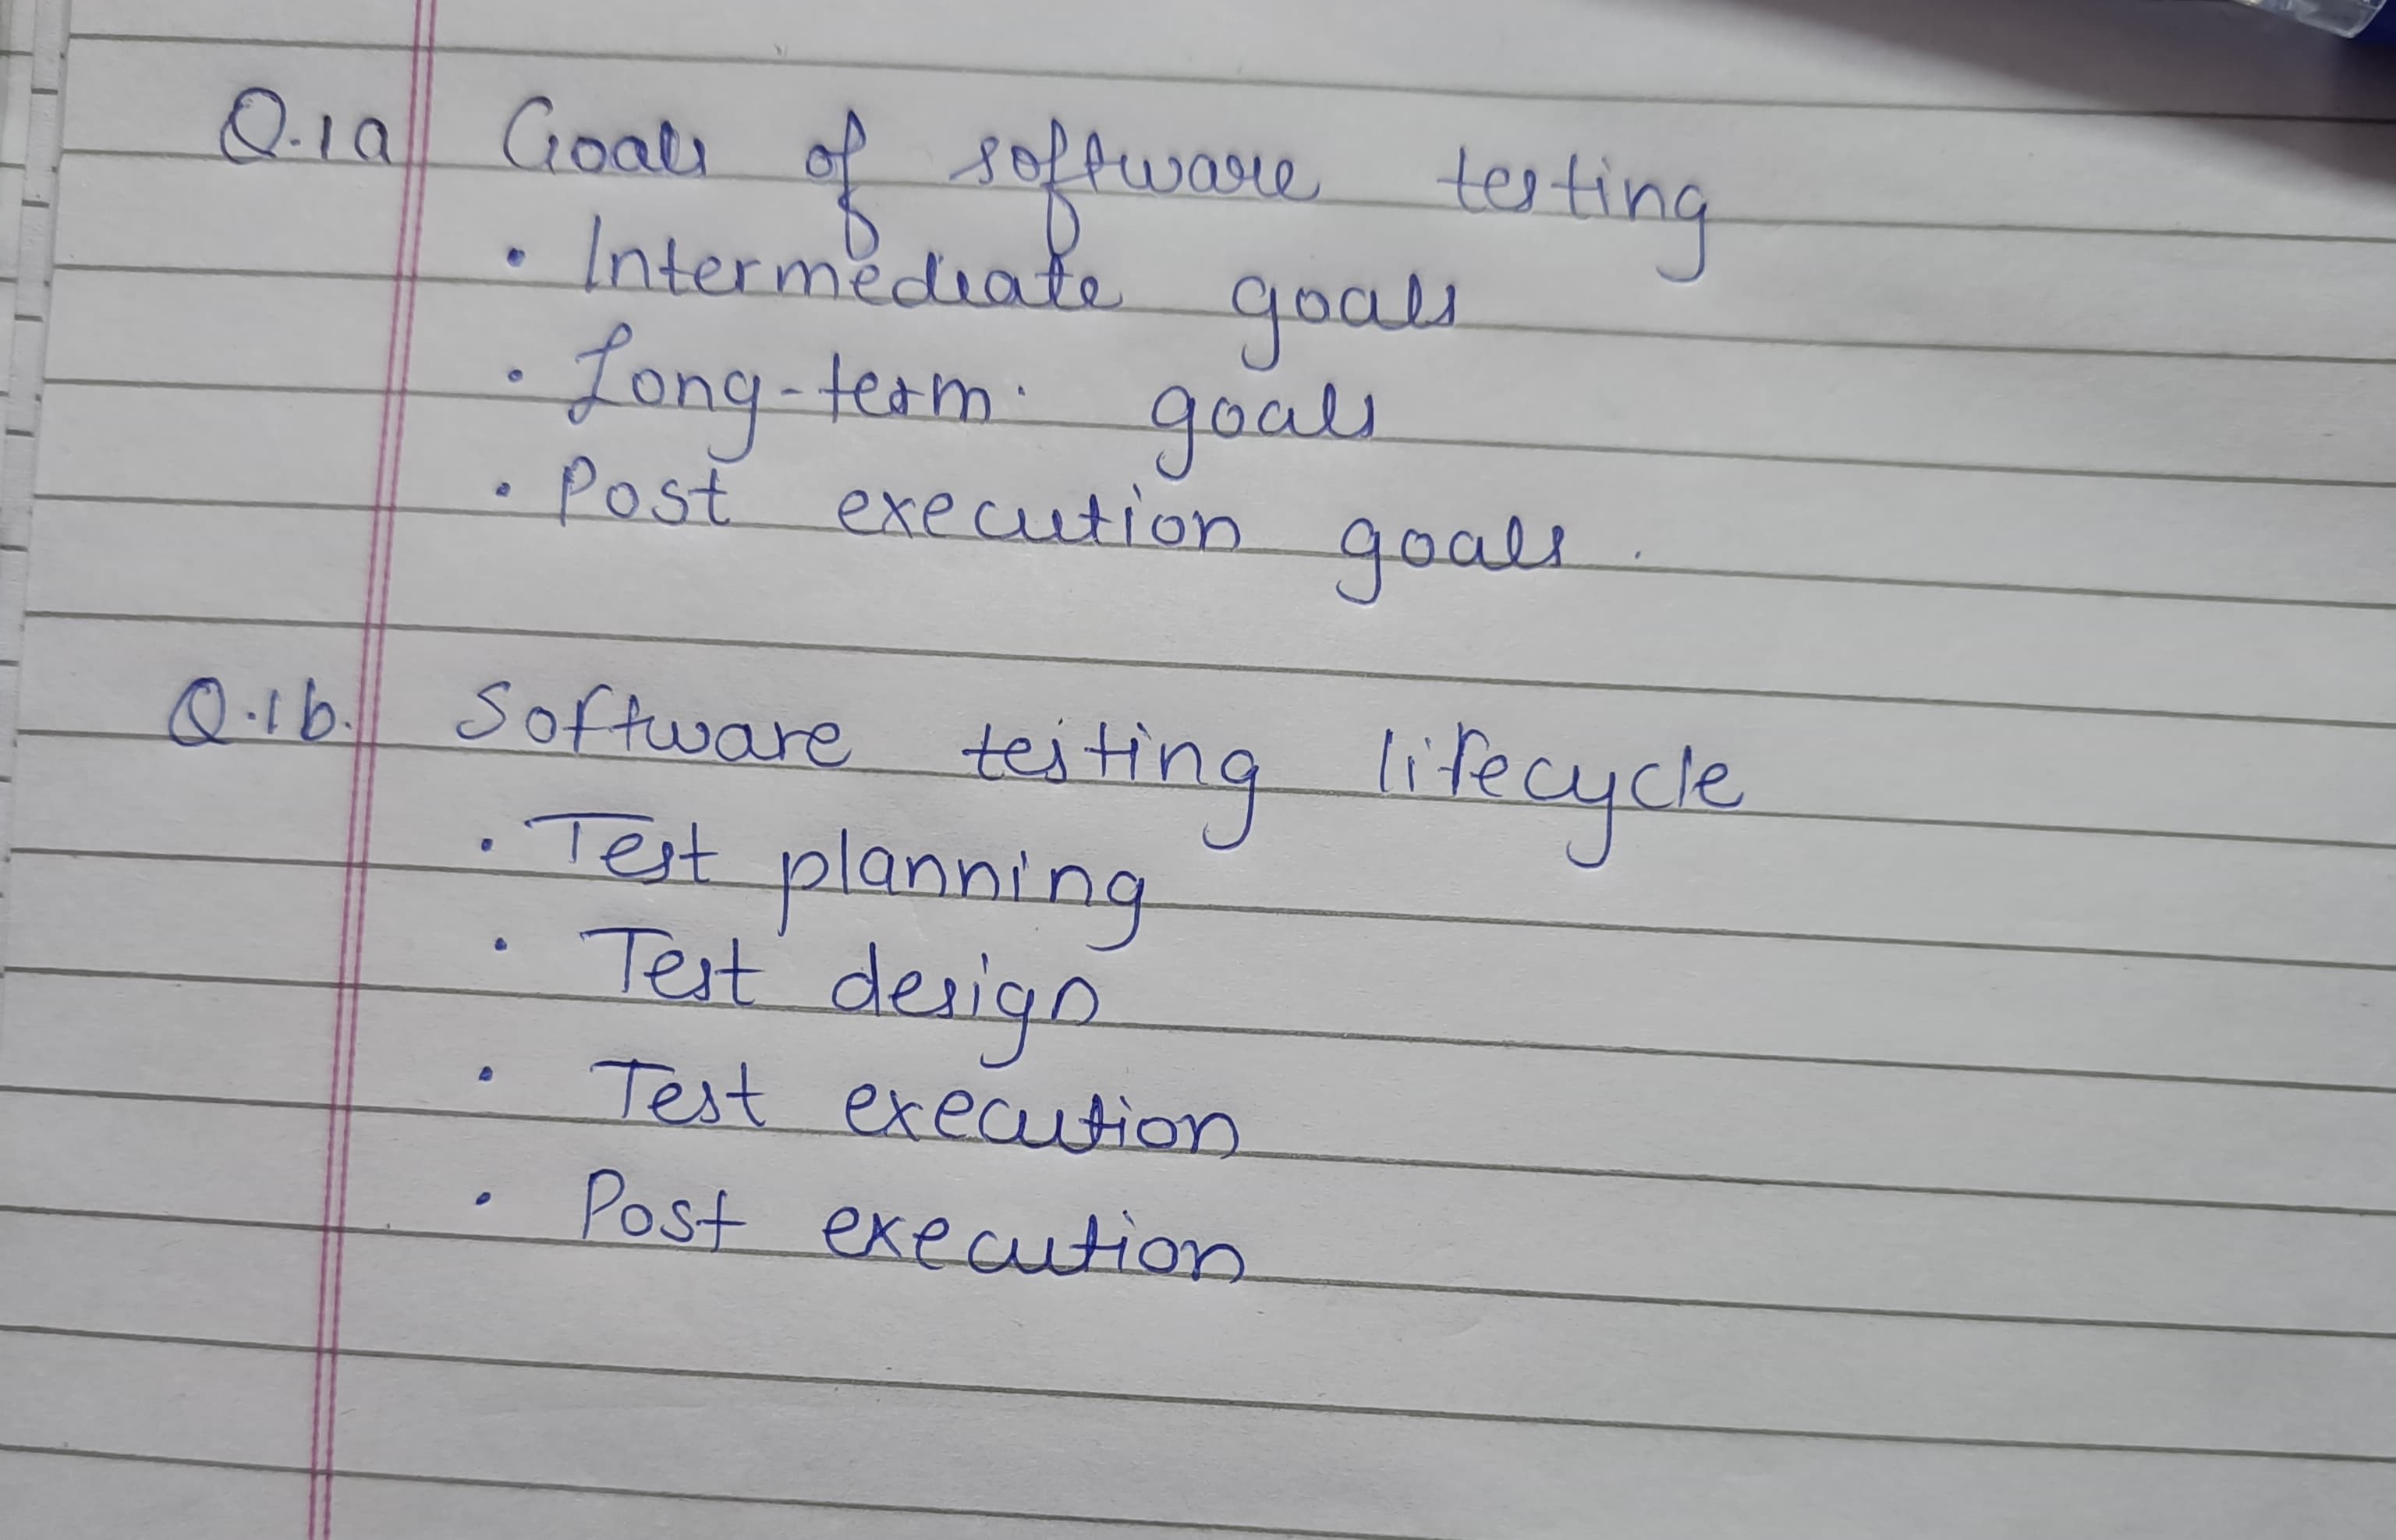 Q.1a Goals of software testing
• Intermediate goals
• Long-term goals
• Post execution goals.
Q.1b. Software testing lifecycle
• Test planning
• Test design
• Test execution
• Post execution